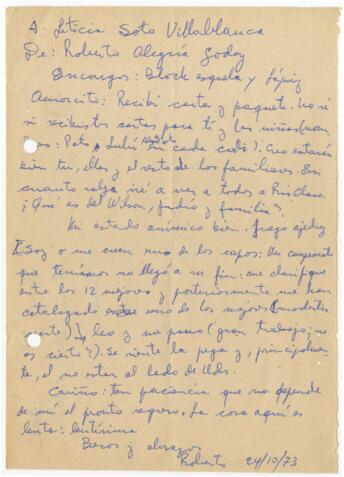 A: Leticia Soto Villablanca
De: Roberto Alegría Godoy
Encargos: Block esquela y Lápiz
Amorcito: Recibí carta y paquete. No sé
si recibiste cartas para ti y las niñas (nom-
bres: Pato, Lulú en cada cual). Creo estarán
bien tu, ellas y el resto de los familiares. En
cuanto salga iré a ver a todos a
¿Qué es de Wilson, Judio y familia?
Mi estado anímico bien. Juego ajedrez
Soy o me creen uno de los capos: Un campeonato
que teníamos no llegó a su fin: me clasifiqué
entre los 12 mejores y posteriormente me han
catalogado como uno de los mejores (modestia
aparte), leo y me paseo (gran trabajo; no
es cierto?). Se siente la pega y, principalmen-
te, el no estar al lado de Uds.
Cariño: ten paciencia que no depende
de mí el pronto regreso. La cosa aquí es
lenta: lentísima
Besos y abrazos
Roberto 24/10/73